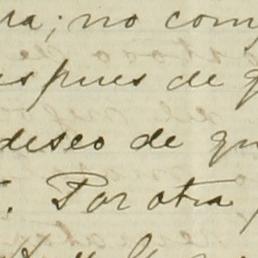 ra; no com
espues de q
deseo de qu
. Por otra